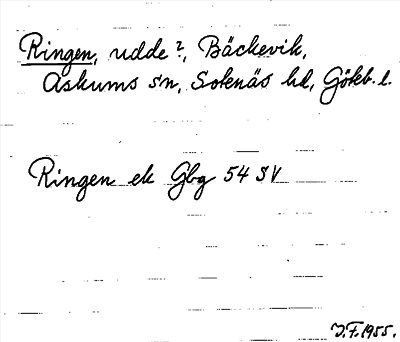 Ringen, udde?, Bäckevik,
Askums sn, Sotenäs hd, Göteb. l.
Ringen ek Gbg 54 SV
J.F. 1955.